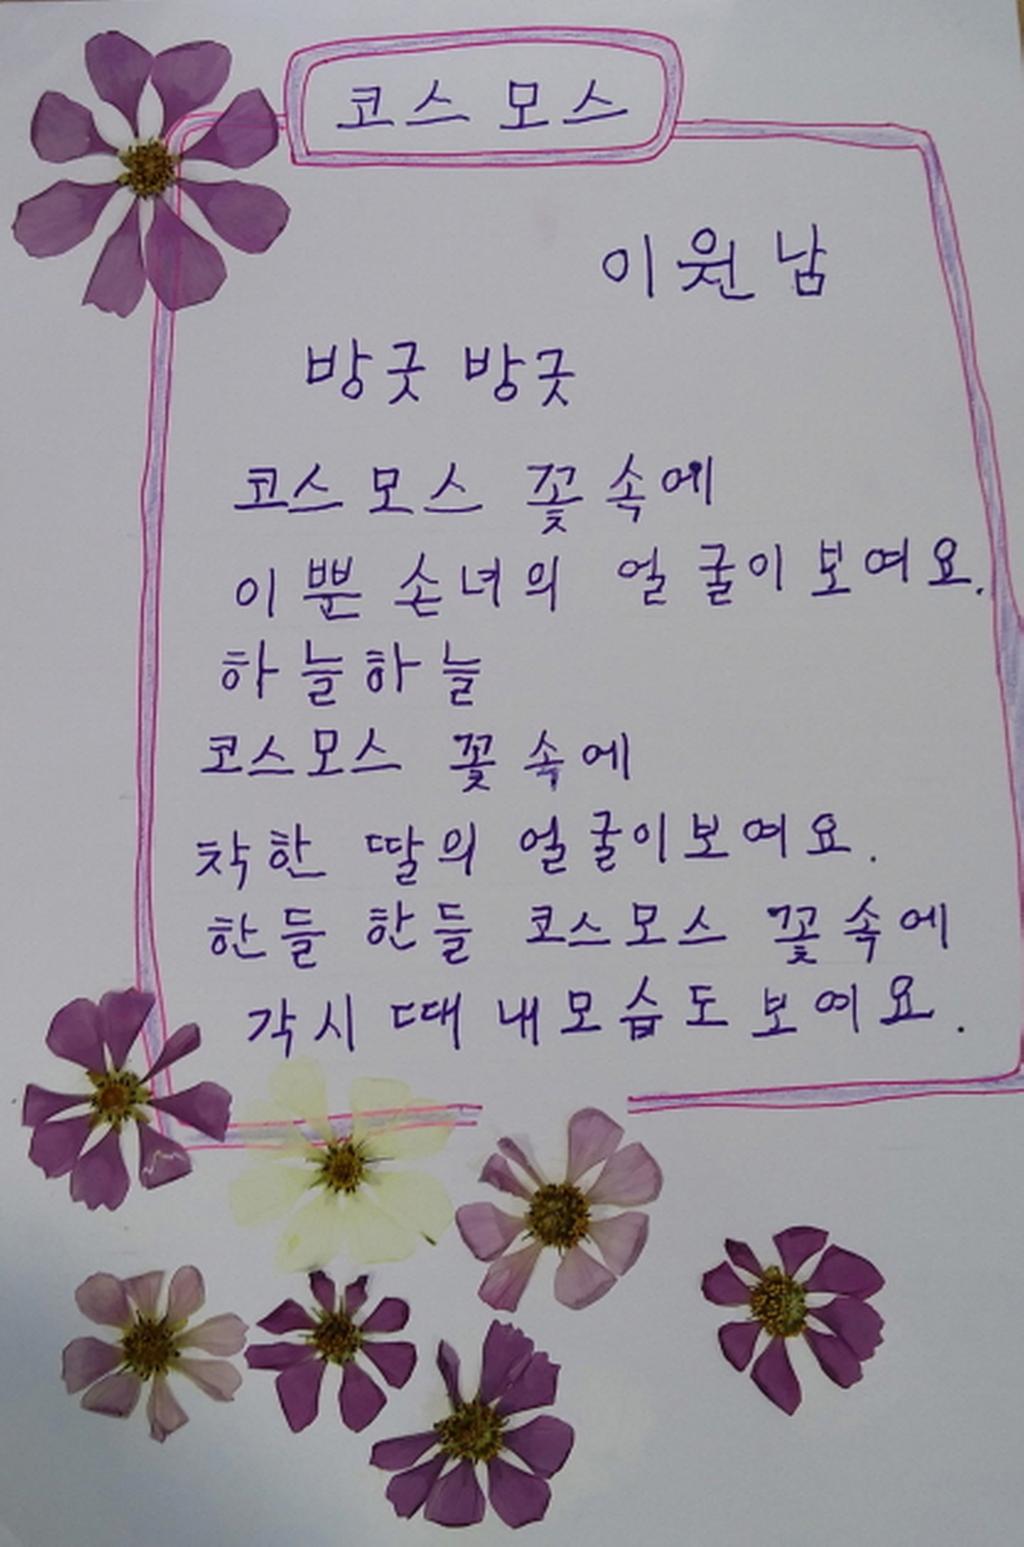 코스모스
이원남
방긋 방긋
코스모스 꽃속에
이뿐 손녀의 얼굴이보여요.
하늘하늘
코스모스 꽃속에
착한 딸의 얼굴이보여요.
한들 한들 코스모스 꽃속에
각시 때 내모습도 보여요.